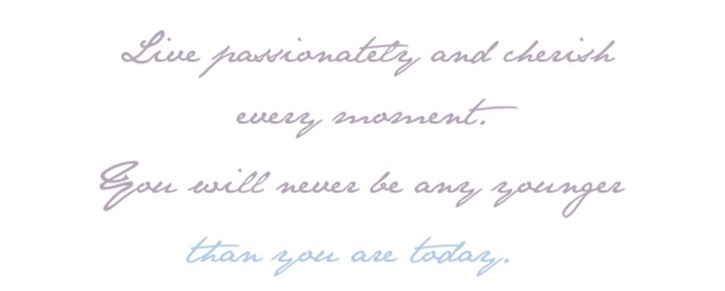 Live passionately and cherish
every moment.
You will never be any younger
than you are today.